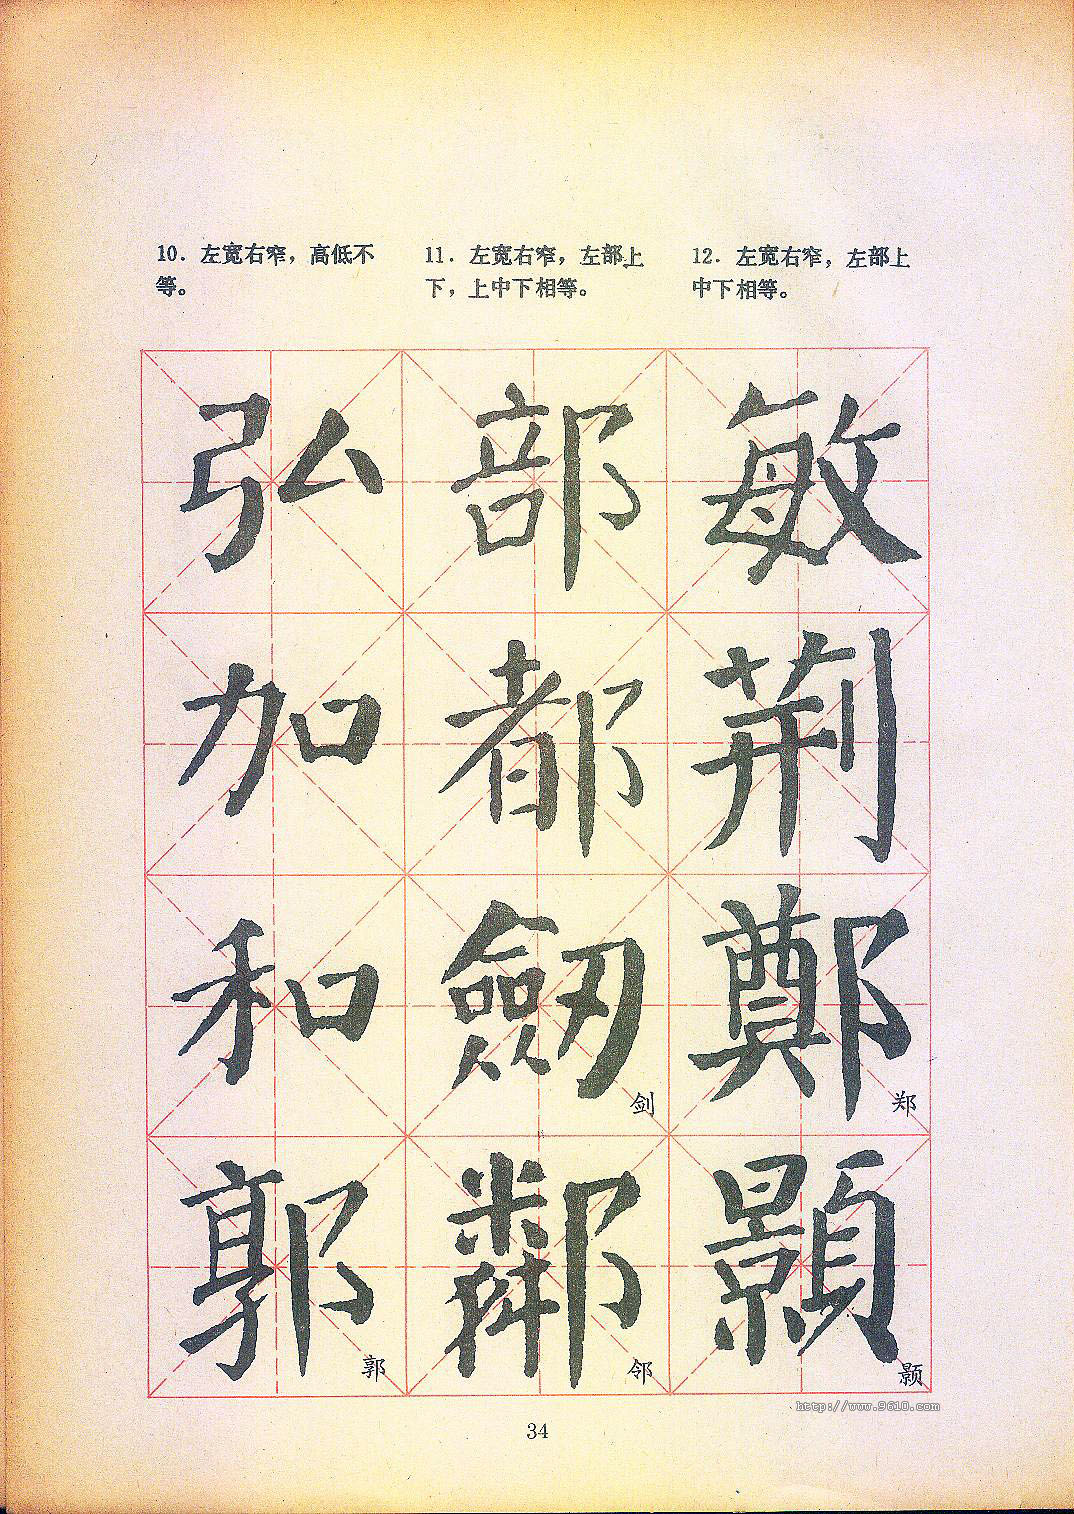 10. 左宽右窄，高低不
等。
11. 左宽右窄，左部上
下，上中下相等。
12. 左宽右窄，左部上
中下相等。
弘 部 敏
加 都 荆
和 劒 鄭
剑 郑
郭 鄰 顥
郭 邻 颢
http://www.9610.com
34